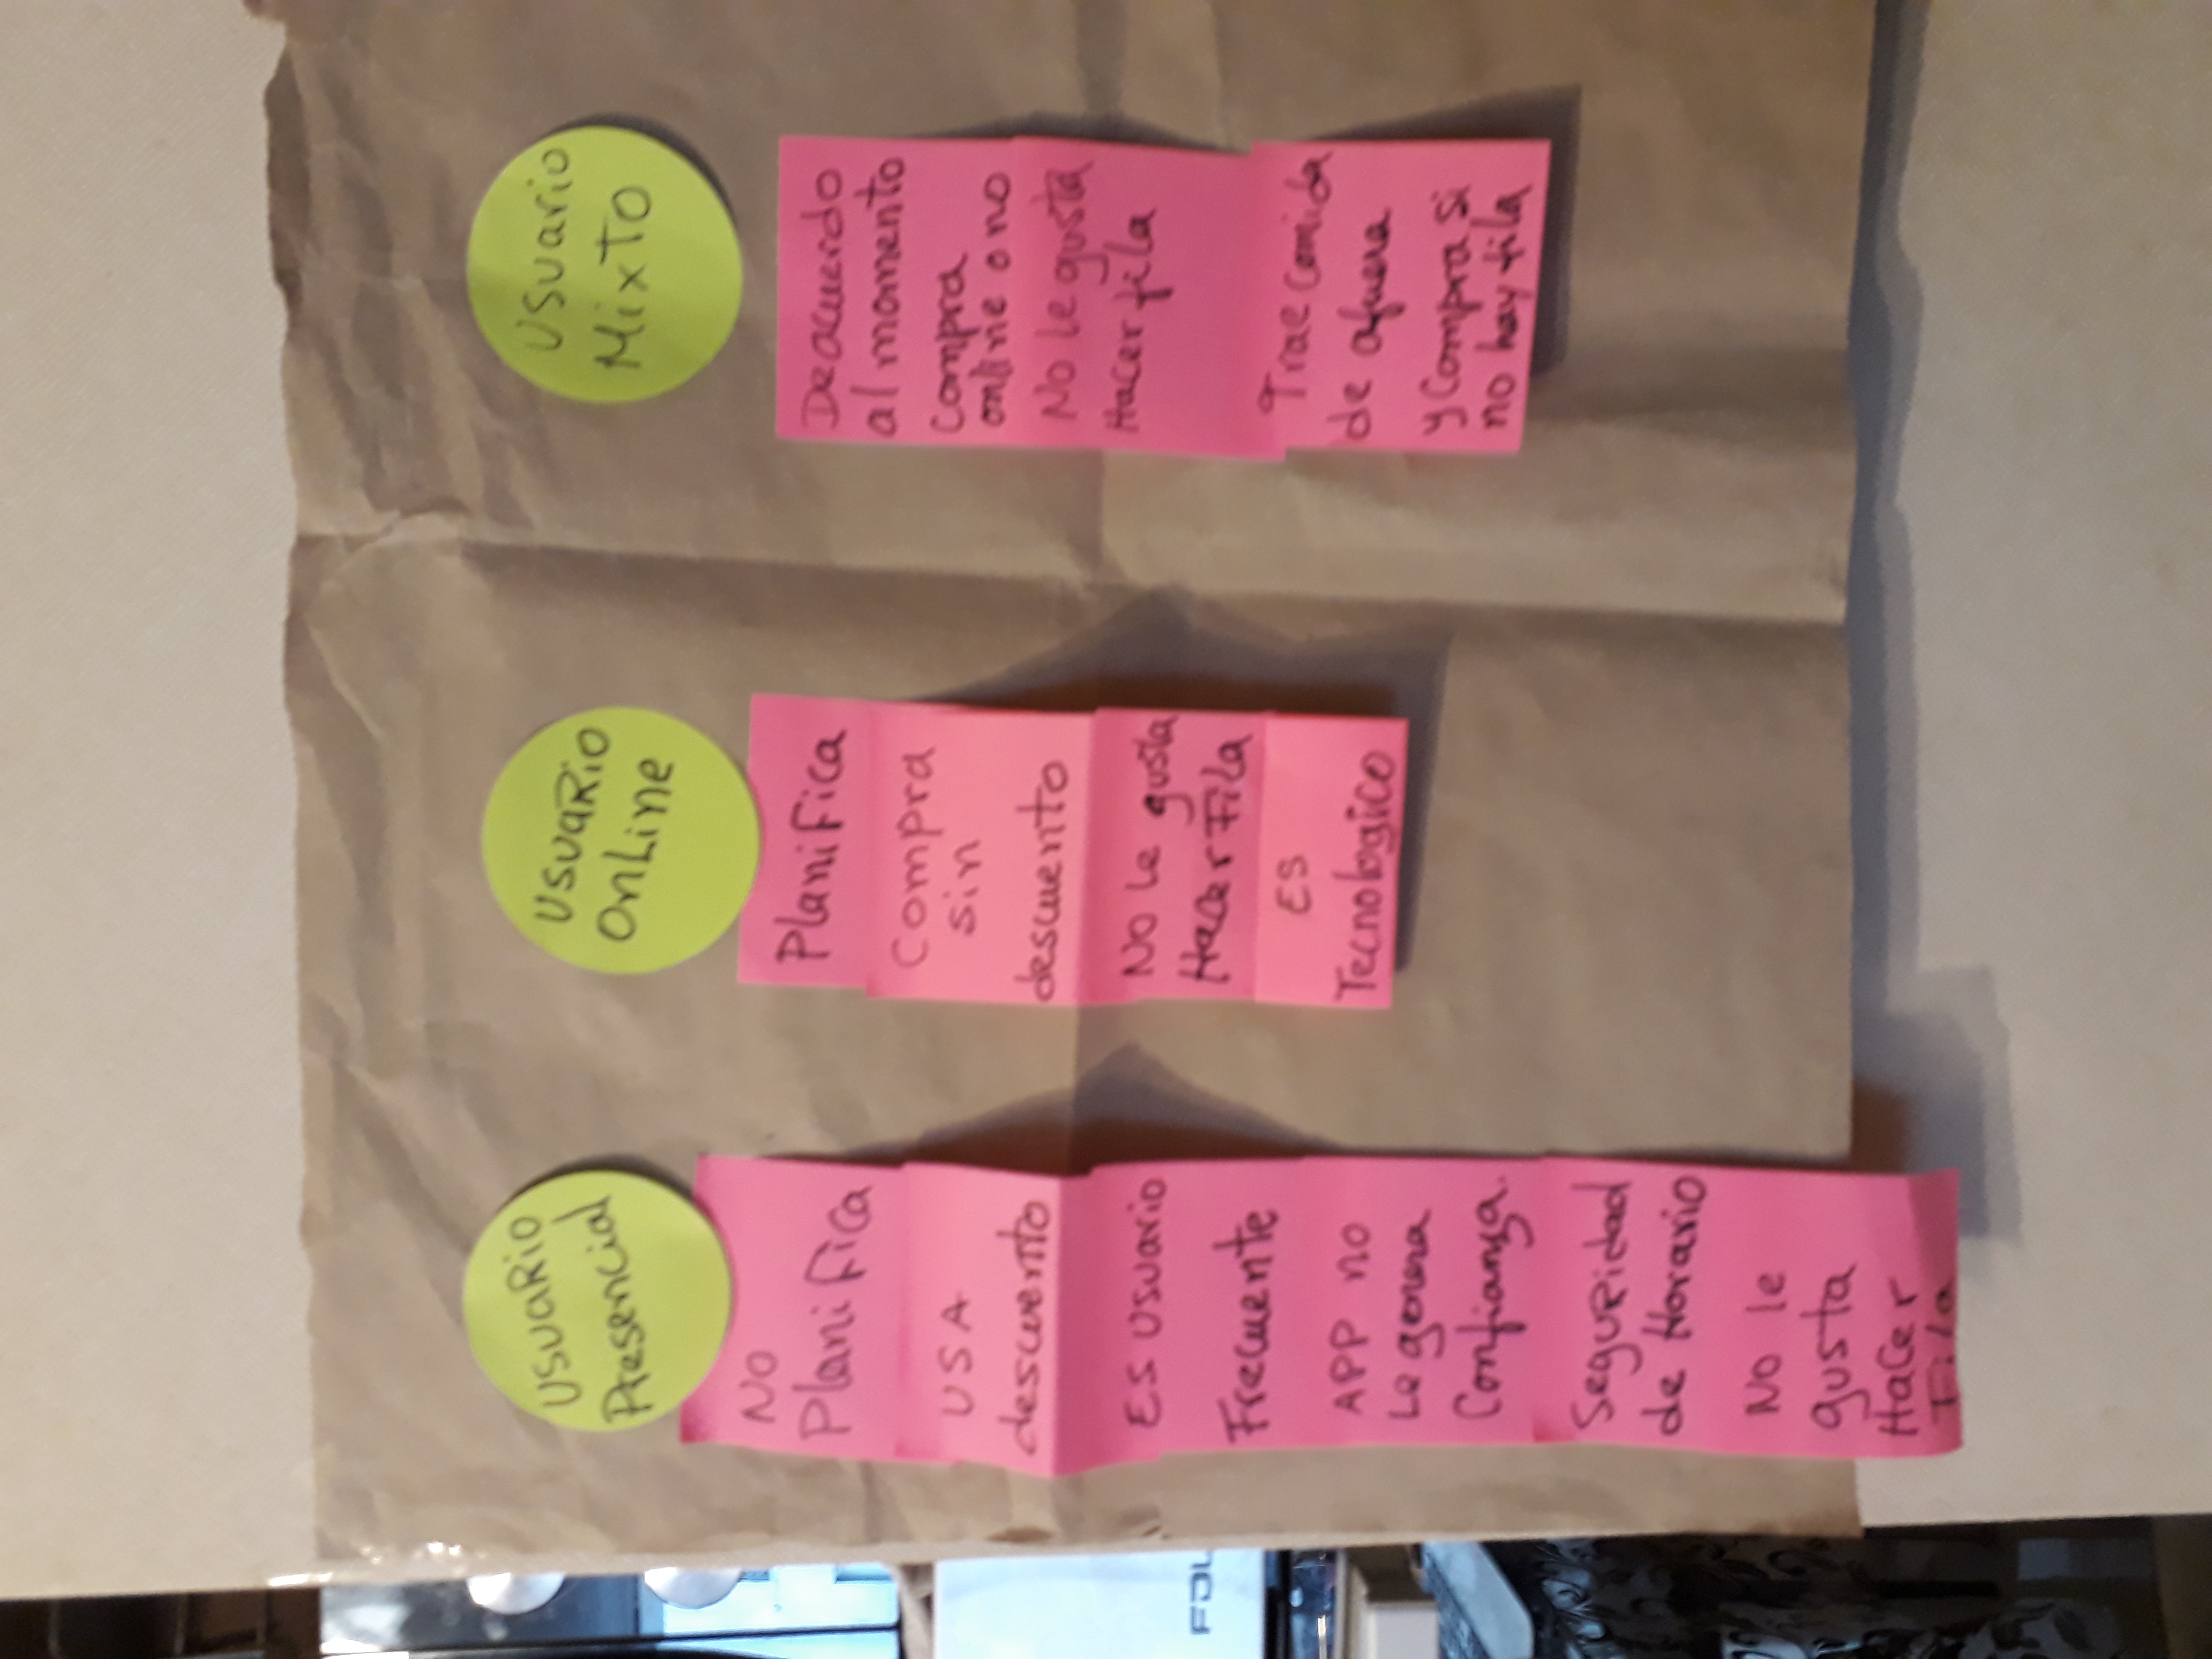 Usuario
Presencial
No
Planifica
USA
descuento
Es usuario
Frecuente
APP no
Le genera
Confianza.
Seguridad
de Horario
No le
gusta
Hacer
Fila
Usuario
Online
Planifica
Compra
sin
descuento
No le gusta
Hacer Fila
ES
Tecnologico
Usuario
Mixto
De acuerdo
al momento
Compra
online o no
No le gusta
Hacer fila
Trae comida
de afuera
y Compra si
no hay fila